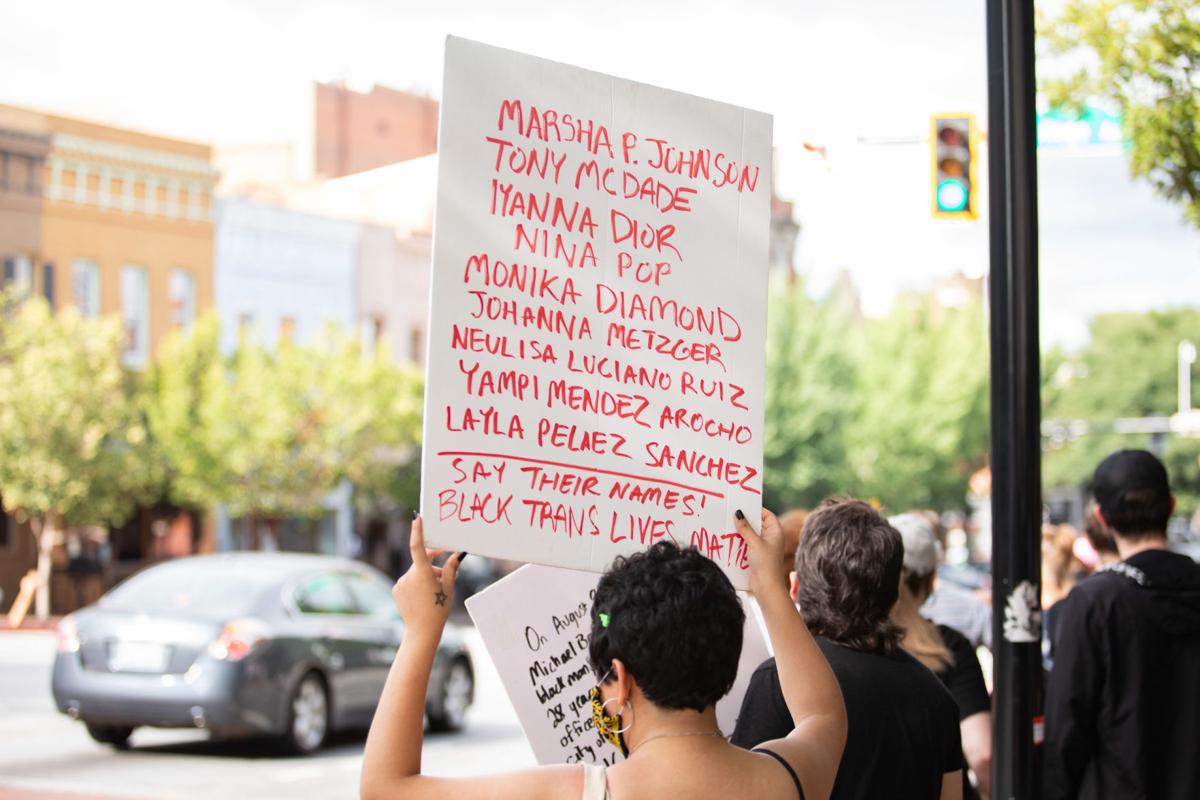 MARSHA P. JOHNSON
TONY MCDADE
IYANNA DIOR
NINA POP
MONIKA DIAMOND
JOHANNA METZGER
NEULISA LUCIANO RUIZ
YAMPI MENDEZ AROCHO
LAYLA PELAEZ SANCHEZ
SAY THEIR NAMES!
BLACK TRANS LIVES MATTE
On August
Michael B
black man
28 year
office
city of